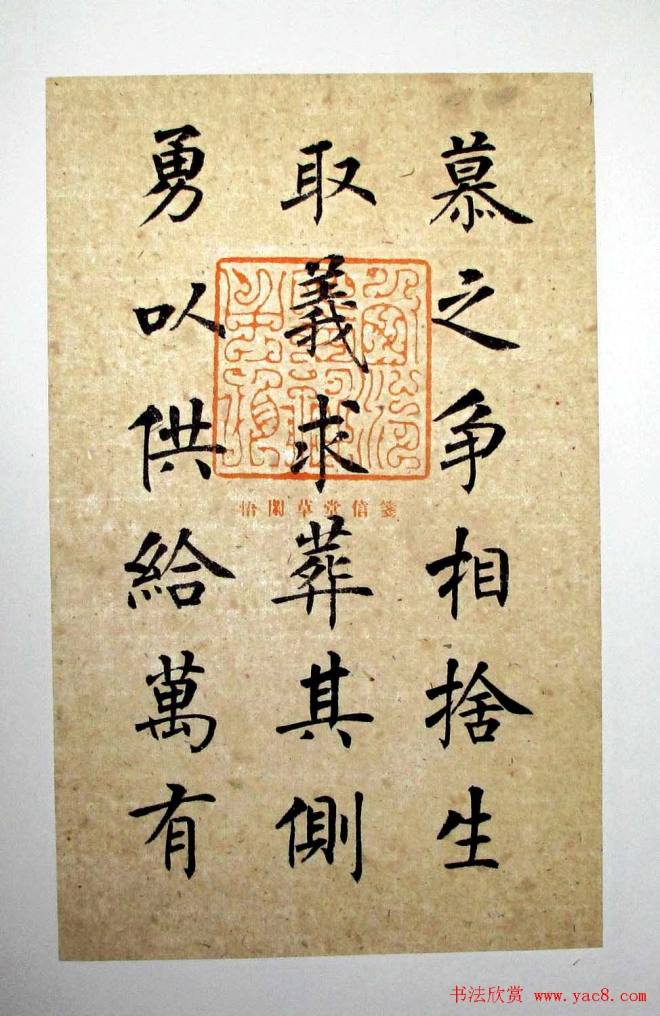 慕之争相捨生
取義求葬其側
勇以供給萬有
箋信堂草閑悟
书法欣赏 www.yac8.com